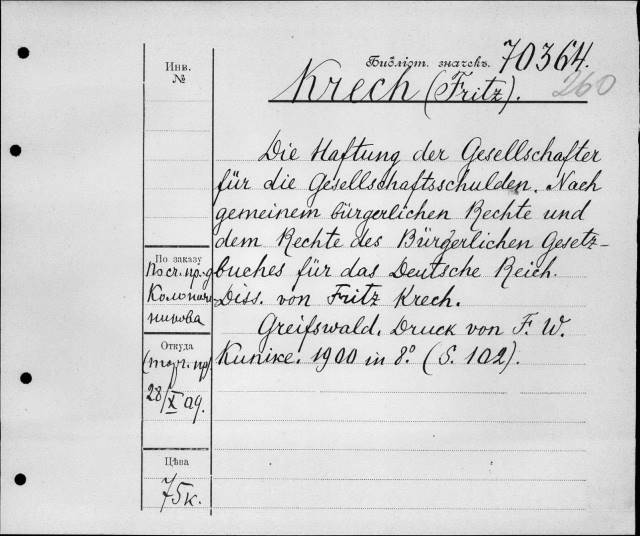 Библіот. значекъ. 70364.
260
Krech (Fritz).
Die Haftung der Gesellschafter
für die Gesellschaftsschulden. Nach
gemeinem bürgerlichen Rechte und
dem Rechte des Bürgerlichen Gesetz-
buches für das Deutsche Reich.
Diss. von Fritz Krech.
Greifswald. Druck von F. W.
Kunike. 1900 in 8° (S. 102).
Инв.
№
По заказу
Откуда
28/X 09.
Цѣна
75к.